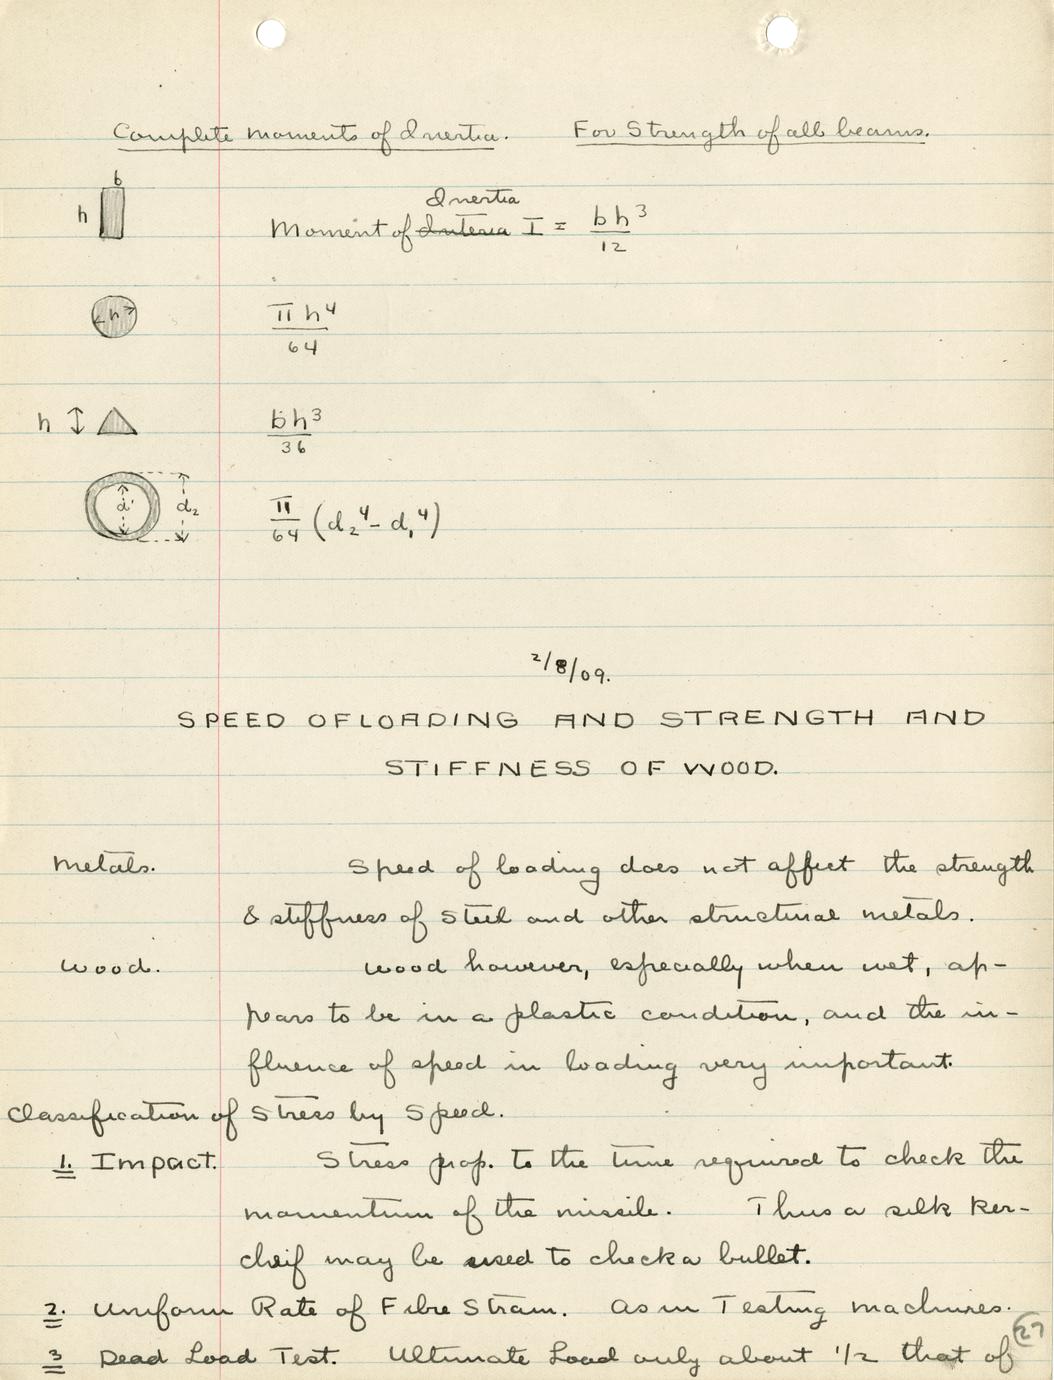 Complete moments of Inertia. For Strength of all beams.
b
h
Inertia
Moment of Interia I = bh³/12
h
π h⁴/64
h
bh³/36
d' d₂
π/64 (d₂⁴ - d₁⁴)
2/8/09.
SPEED OF LOADING AND STRENGTH AND
STIFFNESS OF WOOD.
Metals. Speed of loading does not affect the strength
& stiffness of steel and other structural metals.
Wood. Wood however, especially when wet, ap-
pears to be in a plastic condition, and the in-
fluence of speed in loading very important.
Classification of Stress by Speed.
1. Impact. Stress prop. to the time required to check the
momentum of the missile. Thus a silk ker-
cheif may be used to check a bullet.
2. Uniform Rate of Fibre Strain. As in Testing machines.
27
3 Dead Load Test. Ultimate Load only about 1/2 that of